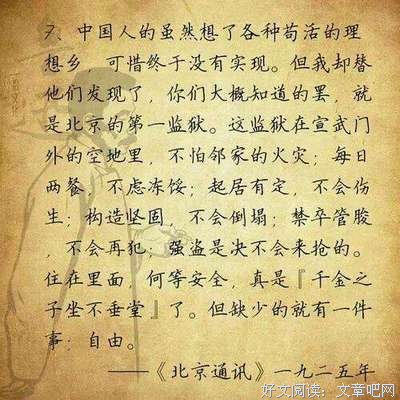 7、中国人的虽然想了各种苟活的理
想乡，可惜终于没有实现。但我却替
他们发现了，你们大概知道的罢，就
是北京的第一监狱。这监狱在宣武门
外的空地里，不怕邻家的火灾；每日
两餐，不虑冻馁；起居有定，不会伤
生；构造坚固，不会倒塌；禁卒管胺
，不会再犯；强盗是决不会来抢的。
住在里面，何等安全，真是『千金之
子坐不垂堂』了。但缺少的就有一件
事：自由。
——《北京通讯》一九二五年
好文阅读：文章吧网